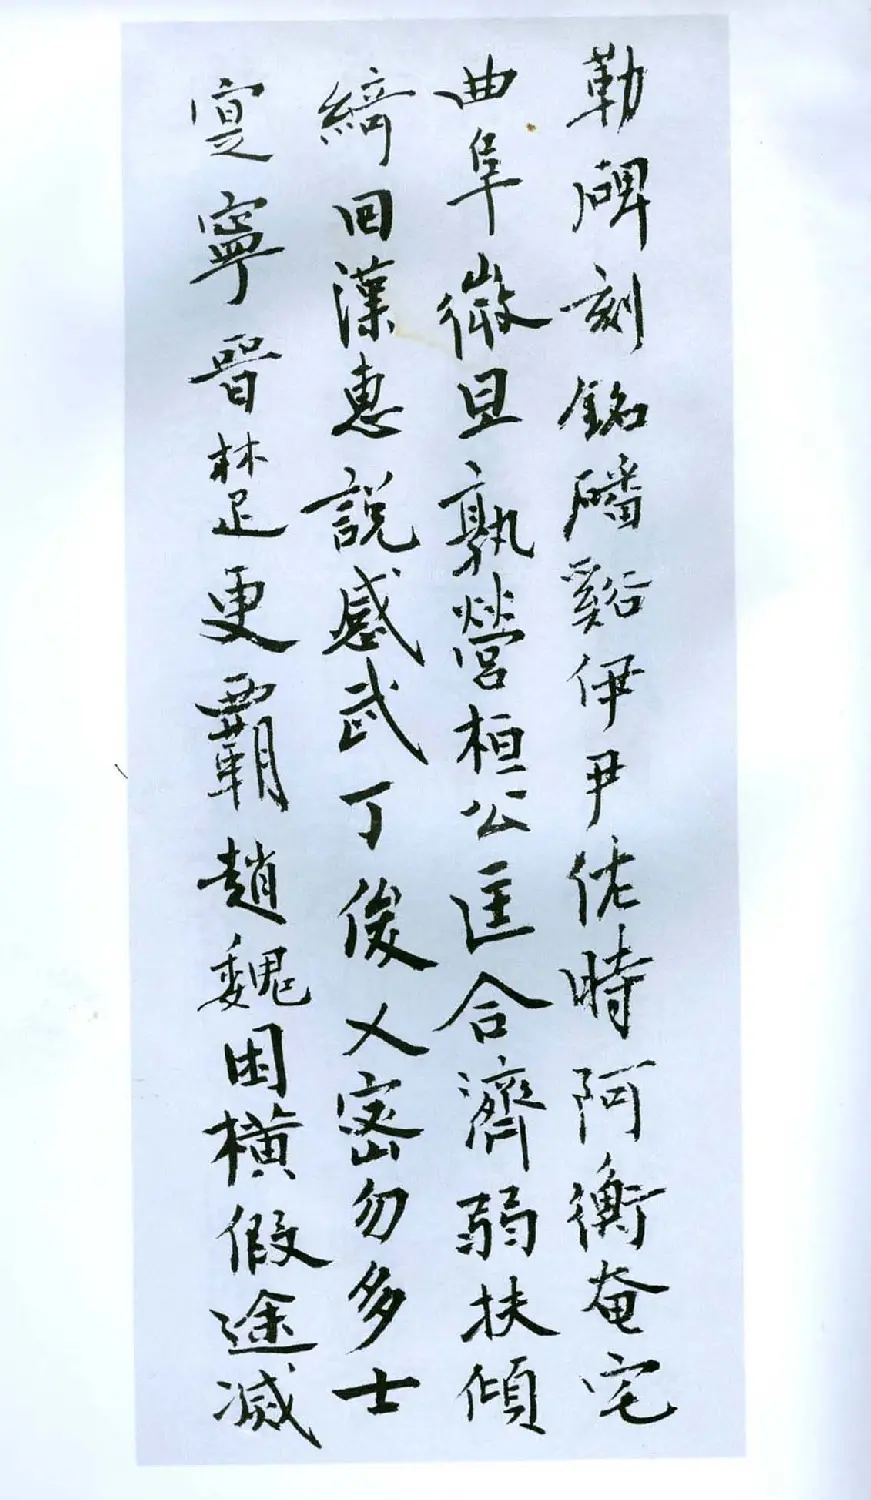 勒碑刻銘磻谿伊尹佐時阿衡奄宅
曲阜微旦孰營桓公匡合濟弱扶傾
綺回漢惠說感武丁俊乂密勿多士
寔寧晉楚更霸趙魏困橫假途滅